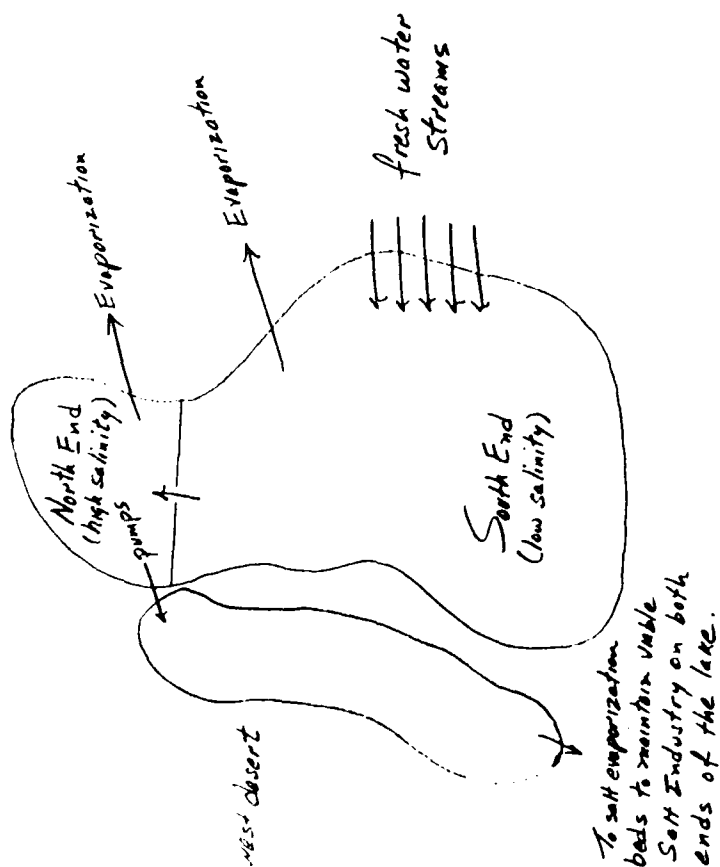 Evaporization
Evaporization
fresh water
streams
North End
(high salinity)
pumps
South End
(low salinity)
west desert
To salt evaporization
beds to maintain viable
Salt Industry on both
ends of the lake.